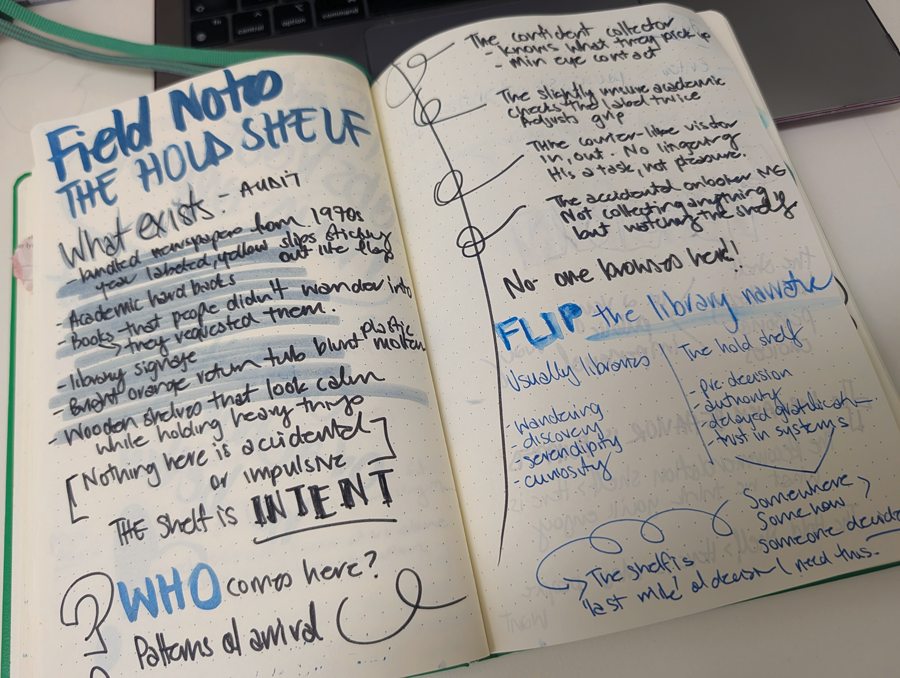 Field Notes
THE HOLD SHELF
What exists - AUDIT
- handled newspapers from 1970s
year labeled, yellow slips sticking
out like flags
- Academic hard backs
- Books that people didn't wander into
→ they requested them.
- library signage
- Bright orange return tub blunt plastic
- Wooden shelves that look calm
while holding heavy things
[Nothing here is accidental
or impulsive]
THE shelf is INTENT
? WHO comes here?
Patterns of arrival
The confident collector
- knows what they pick up
- Min eye contact
The slightly unsure academic
checks the label twice
Adjusts grip
The courier-like visitor
In, out. No lingering
It's a task, not pleasure.
The accidental onlooker ME
Not collecting anything
but watching the shelf
No one browses here!
FLIP the library narrative
Usually libraries
- wandering
- discovery
- serendipity
- curiosity
The hold shelf
- pre decision
- authority
- delayed gratification
- trust in systems
Somewhere
Somehow
someone decided
I need this.
The shelf is
'last mile' of decision